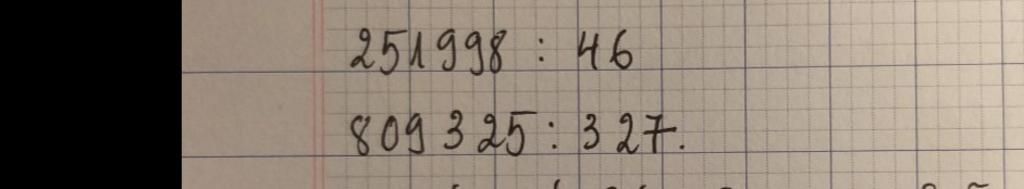 251998 : 46
809325 : 327.